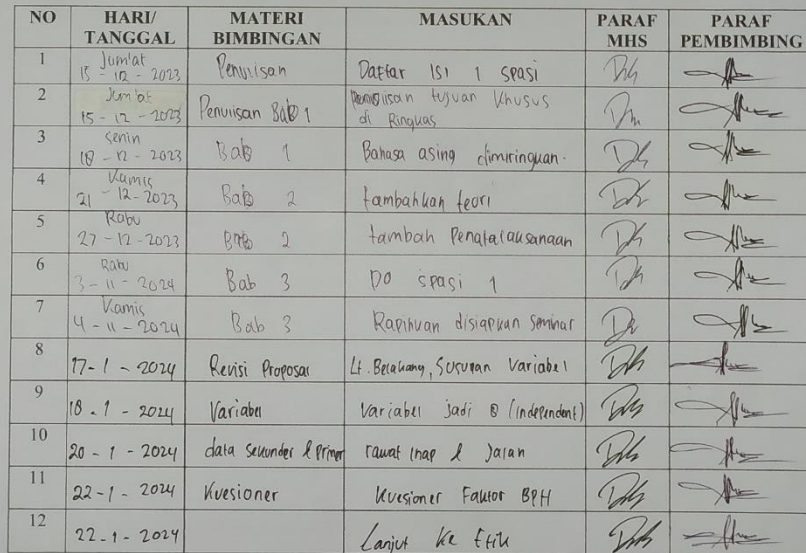 NO HARI/ TANGGAL MATERI BIMBINGAN MASUKAN PARAF MHS PARAF PEMBIMBING
1 Jum'at 15 - 12 - 2023 Penulisan Daftar ISI 1 spasi
2 Jum'at 15 - 12 - 2023 Penulisan Bab 1 Penulisan tujuan khusus di Ringkas
3 Senin 18 - 12 - 2023 Bab 1 Bahasa asing dimiringkan.
4 Kamis 21 - 12 - 2023 Bab 2 tambahkan teori
5 Rabu 27 - 12 - 2023 Bab 2 tambah Penatalaksanaan
6 Rabu 3 - 11 - 2024 Bab 3 DO spasi 1
7 Kamis 4 - 11 - 2024 Bab 3 Rapihkan disiapkan seminar
8 17 - 1 - 2024 Revisi Proposal Lt. Belakang, Susunan Variabel
9 18 - 1 - 2024 Variabel Variabel jadi 8 (independent)
10 20 - 1 - 2024 data sekunder & Primer rawat inap & Jalan
11 22 - 1 - 2024 Kuesioner Kuesioner Faktor BPH
12 22 - 1 - 2024 Lanjut Ke Etik